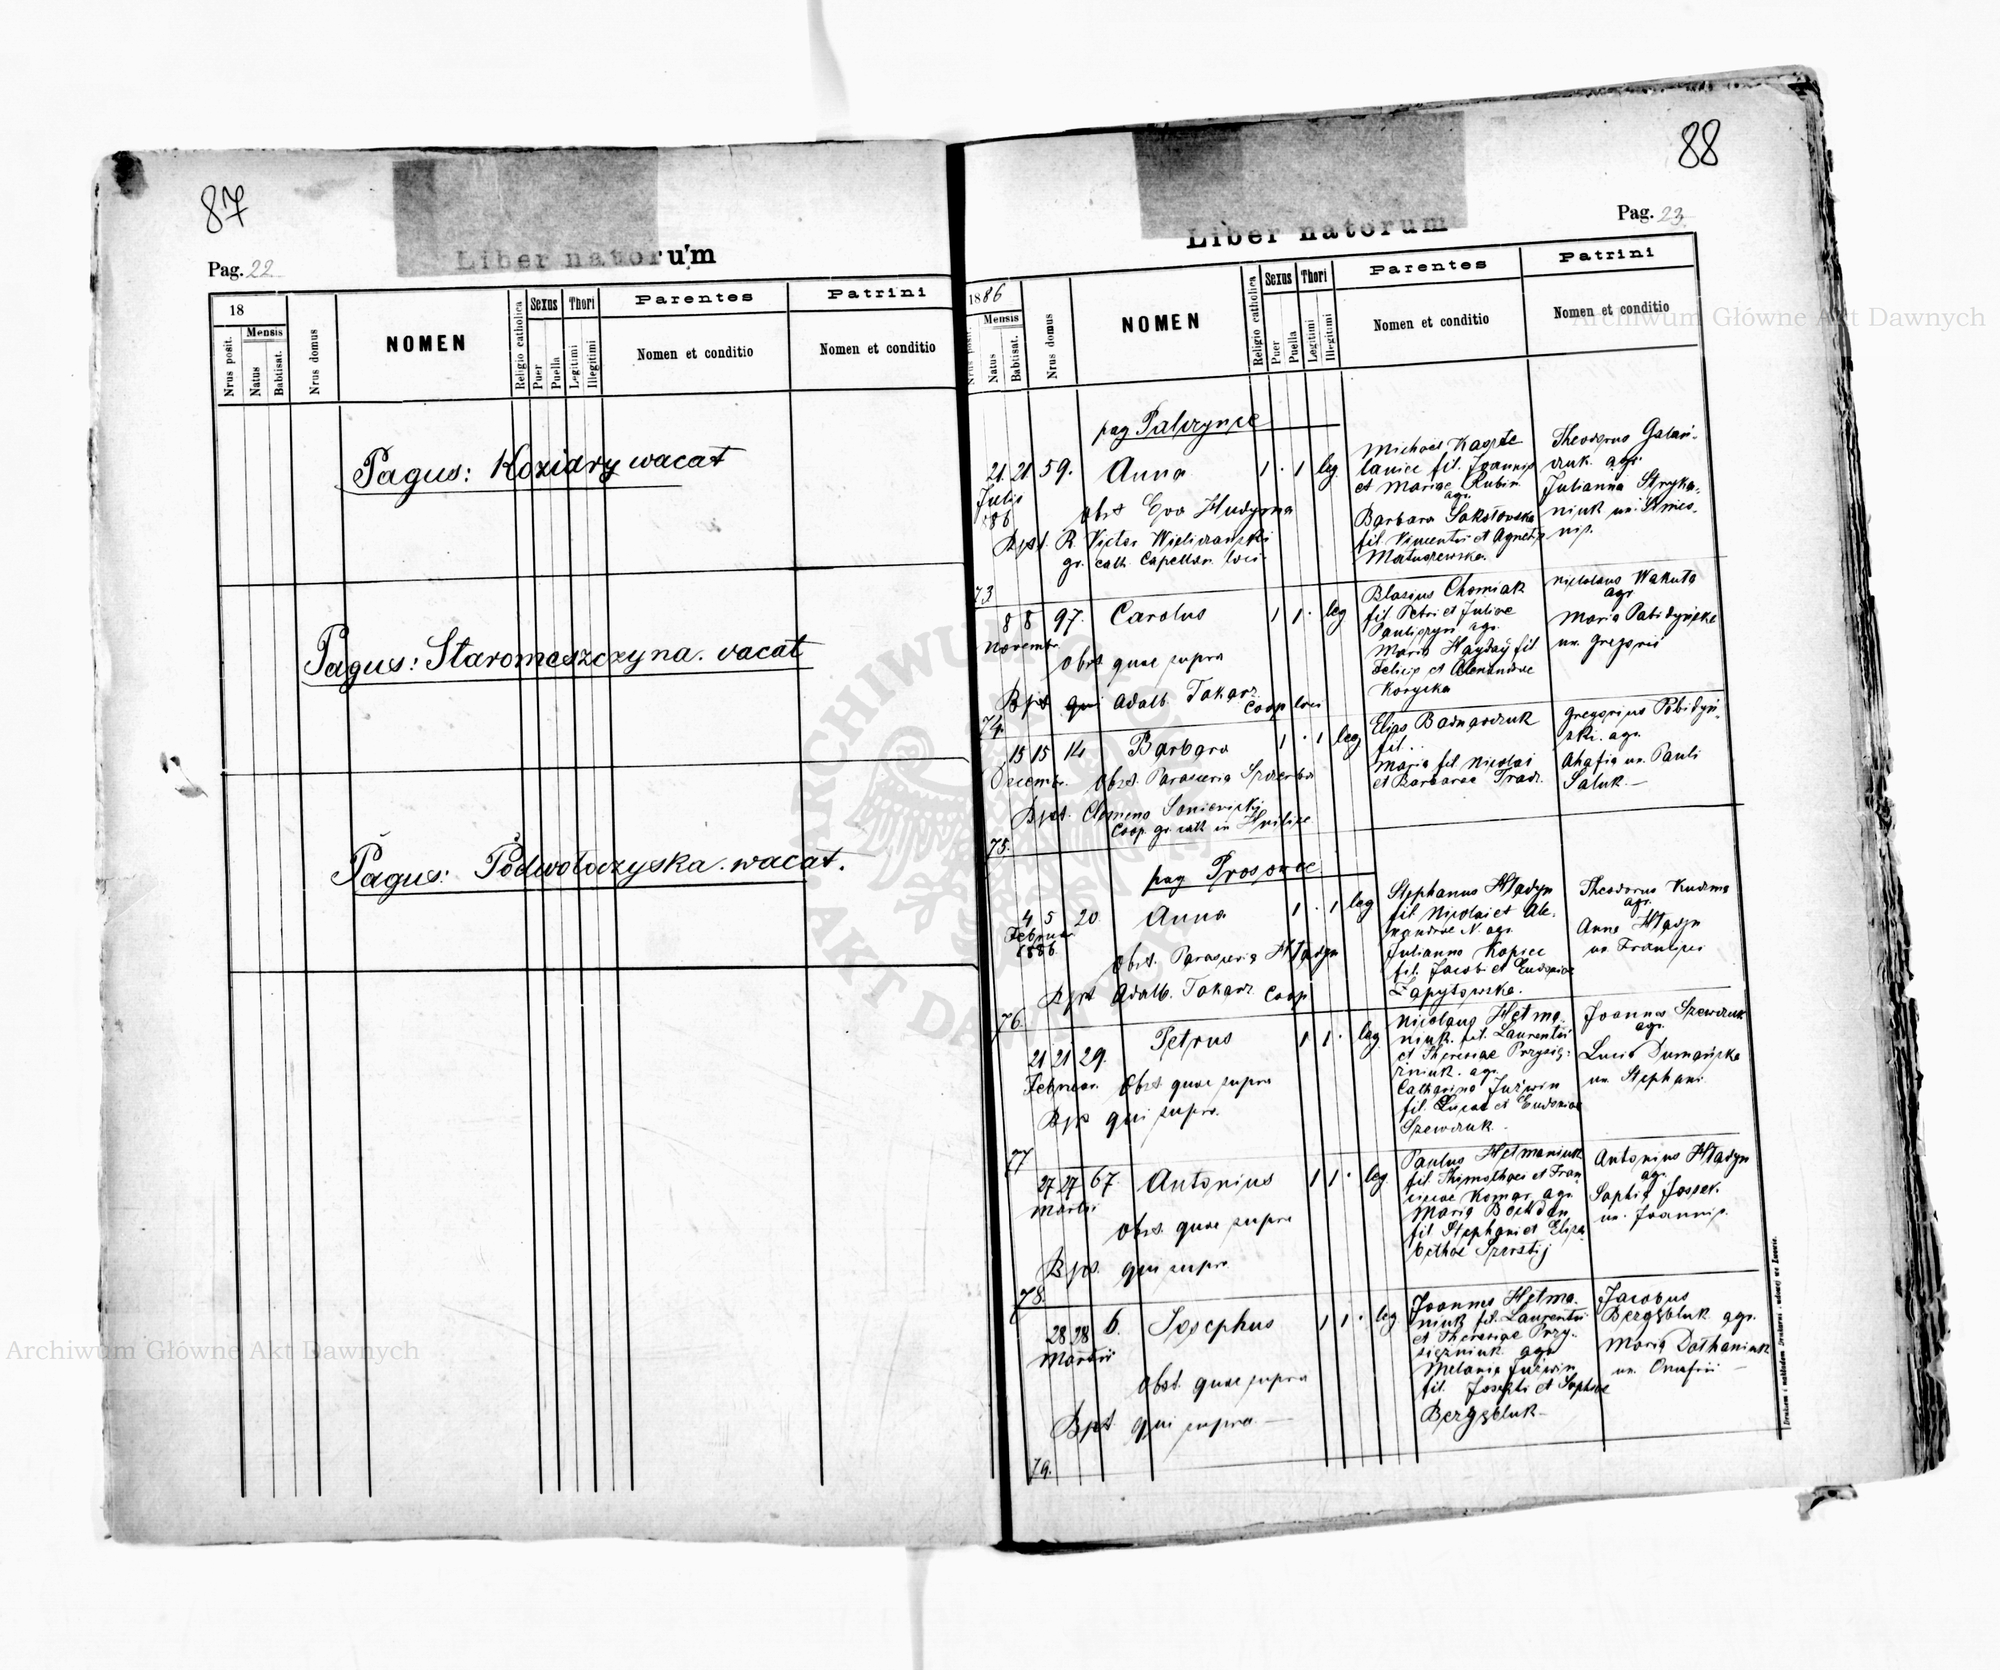 87
Liber natorum
Pag. 22
18
Mensis
Nrus posit.
Natus
Babtisat.
Nrus domus
NOMEN
Religio catholica
Sexus
Puer
Puella
Thori
Legitimi
Illegitimi
Parentes
Nomen et conditio
Patrini
Nomen et conditio
Pagus: Koziary wacat
Pagus: Staromeszczyna. vacat
Pagus: Podwołoczyska. wacat.
88
Liber natorum
Pag. 23
1886
Mensis
Nrus posit.
Natus
Babtisat.
Nrus domus
NOMEN
Religio catholica
Sexus
Puer
Puella
Thori
Legitimi
Illegitimi
Parentes
Nomen et conditio
Patrini
Nomen et conditio
pag Palczynce
21 21 59. Anna 1 · 1 leg
Julii
886
Obst Eva Hudyma
Bpt. R. Victor
gr. cath. Capellan. loci
fil. Joannis
et Mariae Rubin
agr.
Barbara Sokołowska
fil. Vincentii et Agnetis
Matuszewska.
Theodorus
agr.
Julianna
73
8 8 97. Carolus 1 1 · leg
Novembr.
Obst quae supra
Bpt qui Adalb. Tokarz
Coop loci
Blasius Chomiak
fil. Petri et Juliae
agr.
Maria Hayday fil
Felicis et Alexandrae
Korycka
Nicolaus Wakuta
agr
Maria Pabidyńska
ux. Gregorii
74.
15 15 14 Barbara 1 · 1 leg
Decembr. Obst. Parasceria
Bpt. Clemens
Coop. gr. cath in
Elias Bodnarczuk
fil.
Maria fil Nicolai
et Barbarae
Gregorius Pobidyń-
ski. agr.
Ahafia ux. Pauli
Saluk. —
75.
pag Prosowce
4 5 20 Anna 1 · 1 leg
Februar
1886.
Obst. Parasceria Hładyn
Bpt Adalb. Tokarz Coop
Stephanus Hładyn
fil. Nicolai et Ale-
xandrae N. agr.
Julianna Kopiec
fil. Jacobi et Eudoxiae
Zapytowska.
Theodorus Kuzma
agr.
Anna Hładyn
ux. Francisci
76.
21 21 29. Petrus 1 1 · leg
Februar. Obst. quae supra
Bpt qui supra.
Nicolaus Hetma-
niuk. fil. Laurentii
et Theresiae Przysię-
żniuk. agr.
Catharina Juźwin
fil. Lucae et Eudoxiae
Szewczuk.
Joannes Szewczuk
agr.
Lucia Dumańska
ux. Stephani
77
27 27 67. Antonius 1 1 · leg
Martii
Obst. quae supra
Bpt. qui supra
Paulus Hetmaniuk
fil. Thimothaei et Fran-
ciscae Komar agr.
Maria Bohdan
fil Stephani et Elisa
bethae
Antonius Hładyn
agr.
Sophia
ux. Joannis.
78.
28 28 6. Josephus 1 1 · leg
Martii
Obst. quae supra
Bpt qui supra —
Joannes Hetma-
niuk fil. Laurentii
et Theresiae Przy-
siężniuk. agr
Melania Juźwin
fil. Josephi et Sophiae
Jacobus
agr.
Maria
ux. Onufrii —
79.
Archiwum Główne Akt Dawnych
Archiwum Główne Akt Dawnych